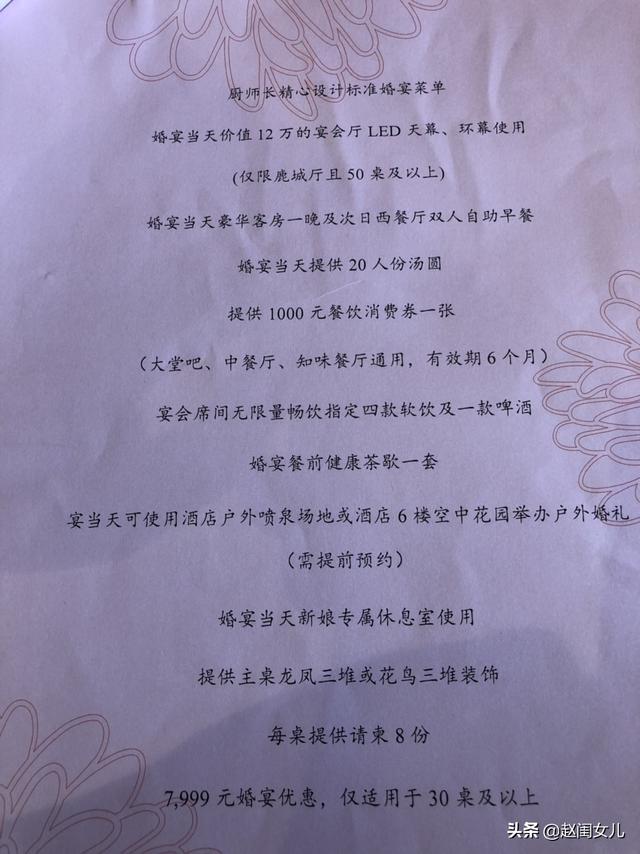 厨师长精心设计标准婚宴菜单
婚宴当天价值12万的宴会厅LED天幕、环幕使用
(仅限鹿城厅且50桌及以上)
婚宴当天豪华客房一晚及次日西餐厅双人自助早餐
婚宴当天提供20人份汤圆
提供1000元餐饮消费券一张
（大堂吧、中餐厅、知味餐厅通用，有效期6个月）
宴会席间无限量畅饮指定四款软饮及一款啤酒
婚宴餐前健康茶歇一套
宴当天可使用酒店户外喷泉场地或酒店6楼空中花园举办户外婚礼
（需提前预约）
婚宴当天新娘专属休息室使用
提供主桌龙凤三堆或花鸟三堆装饰
每桌提供请柬8份
7,999元婚宴优惠，仅适用于30桌及以上
头条 @赵闺女儿